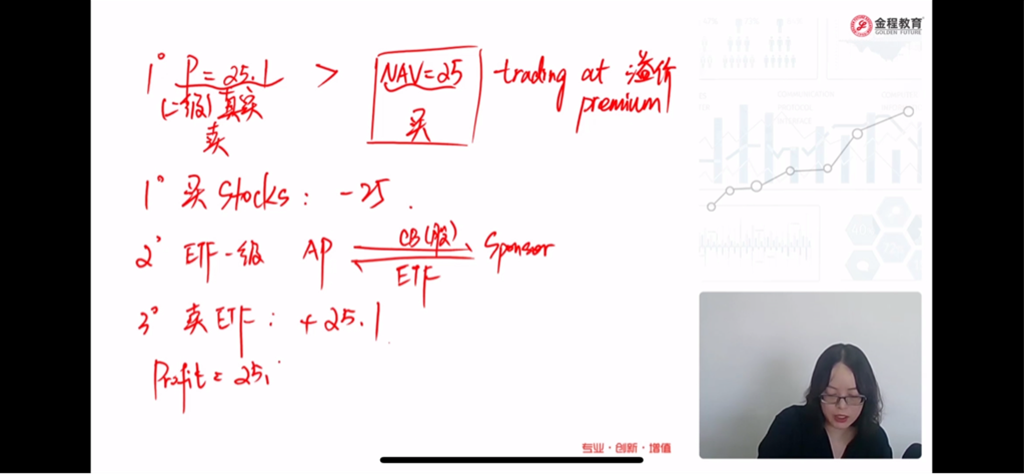 金程教育
GOLDEN FUTURE
1° P=25.1 > NAV=25 trading at 溢价
(二级) 真实 premium
卖 买
1° 买 Stocks: -25.
2° ETF一级 AP CB(股) Sponsor
ETF
3° 卖 ETF: +25.1
Profit = 25.
专业·创新·增值